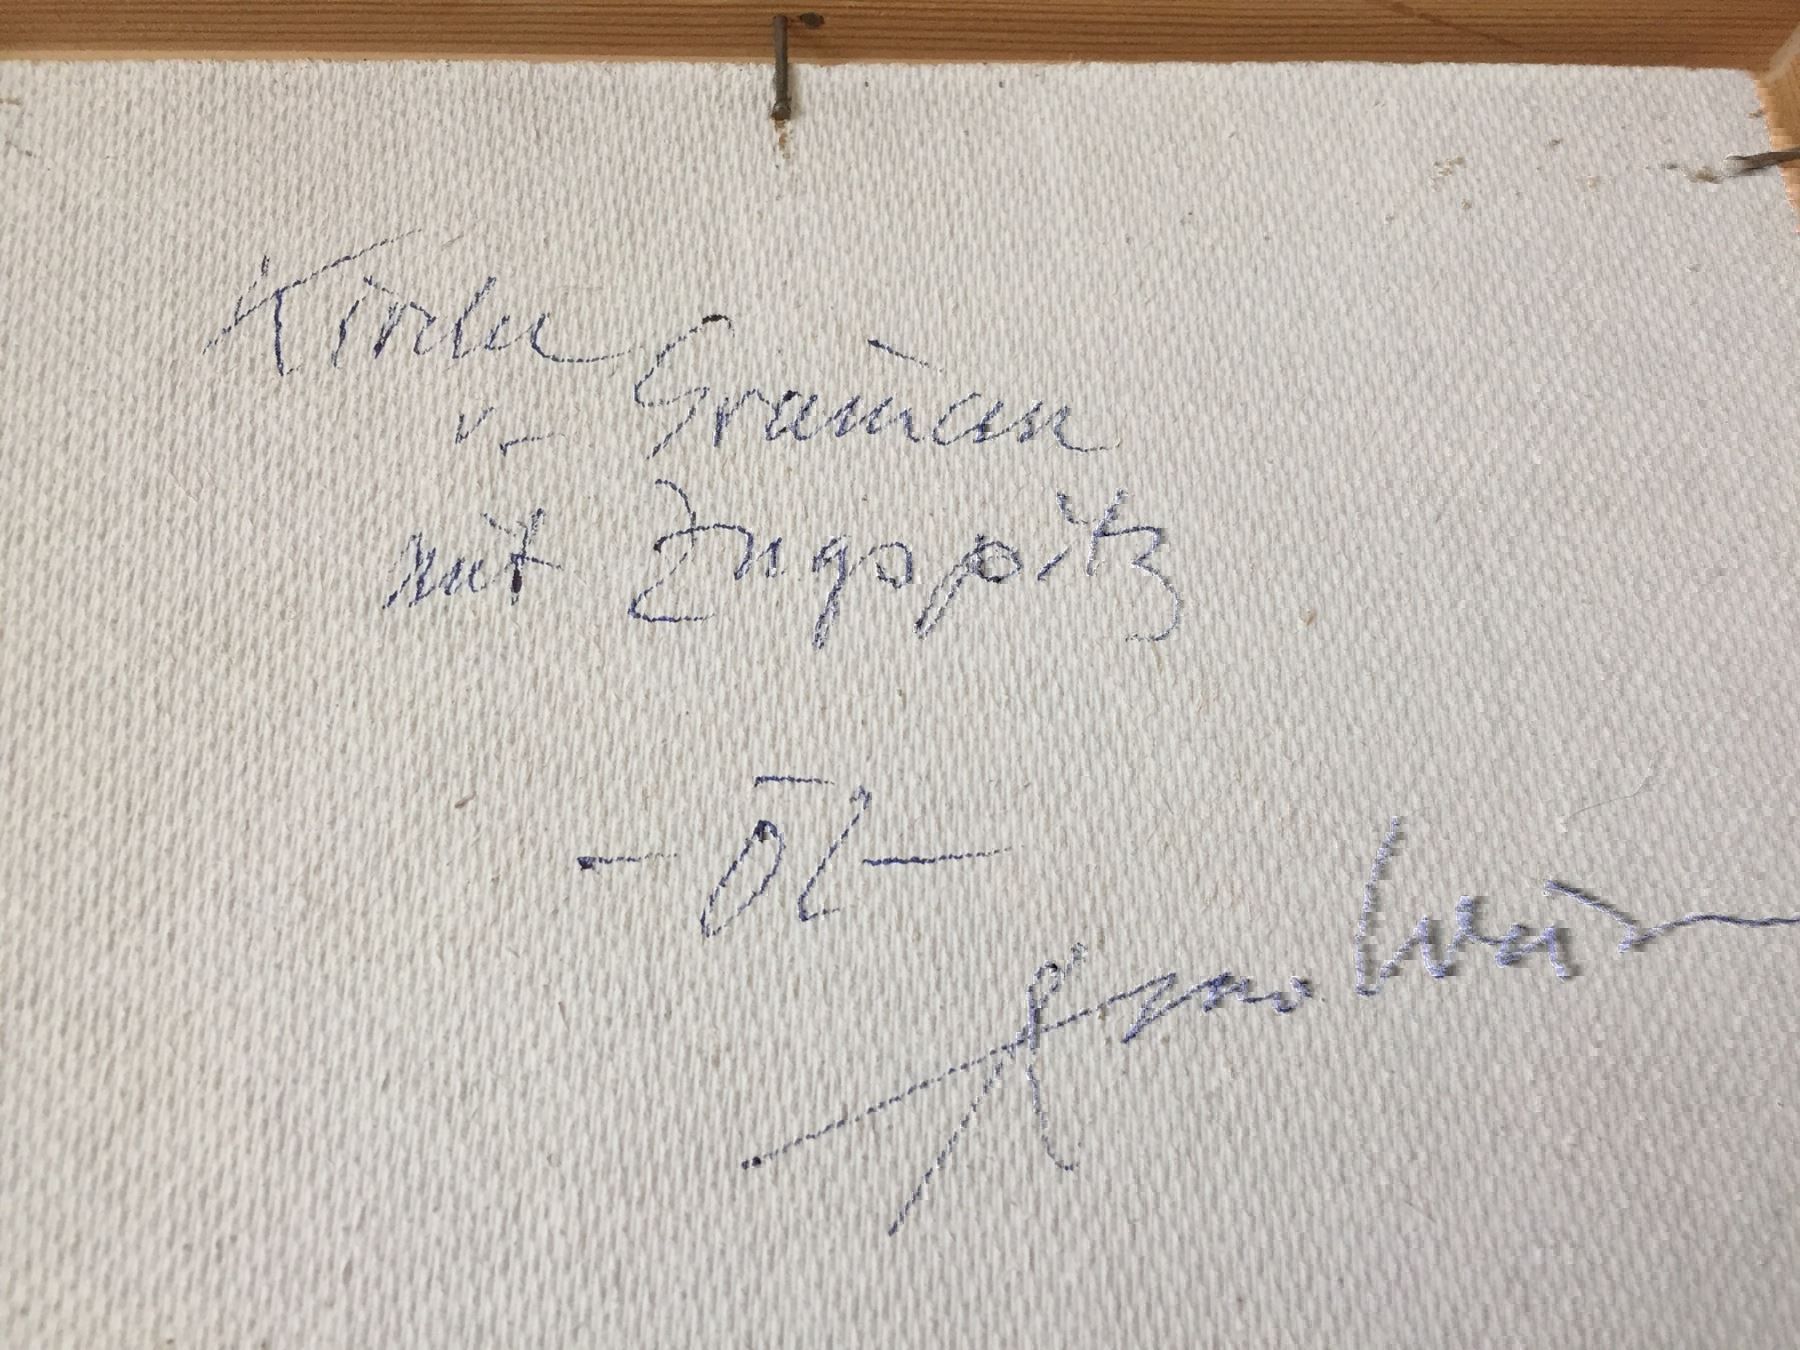 Kirche
v. Grainau
mit Zugspitz
- Öl -